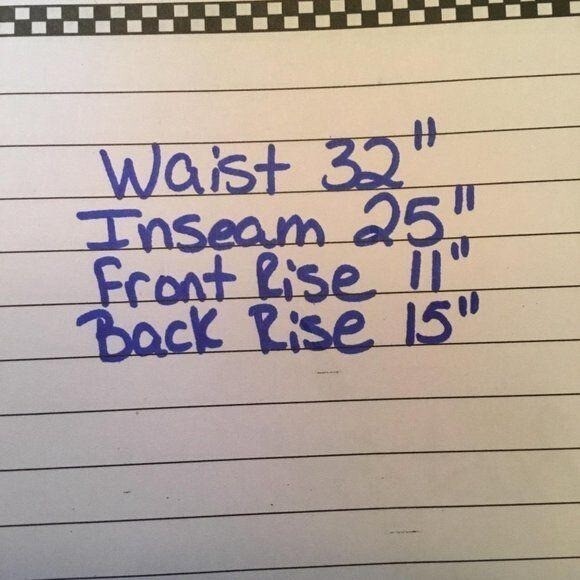 Waist 32"
Inseam 25"
Front Rise 11"
Back Rise 15"